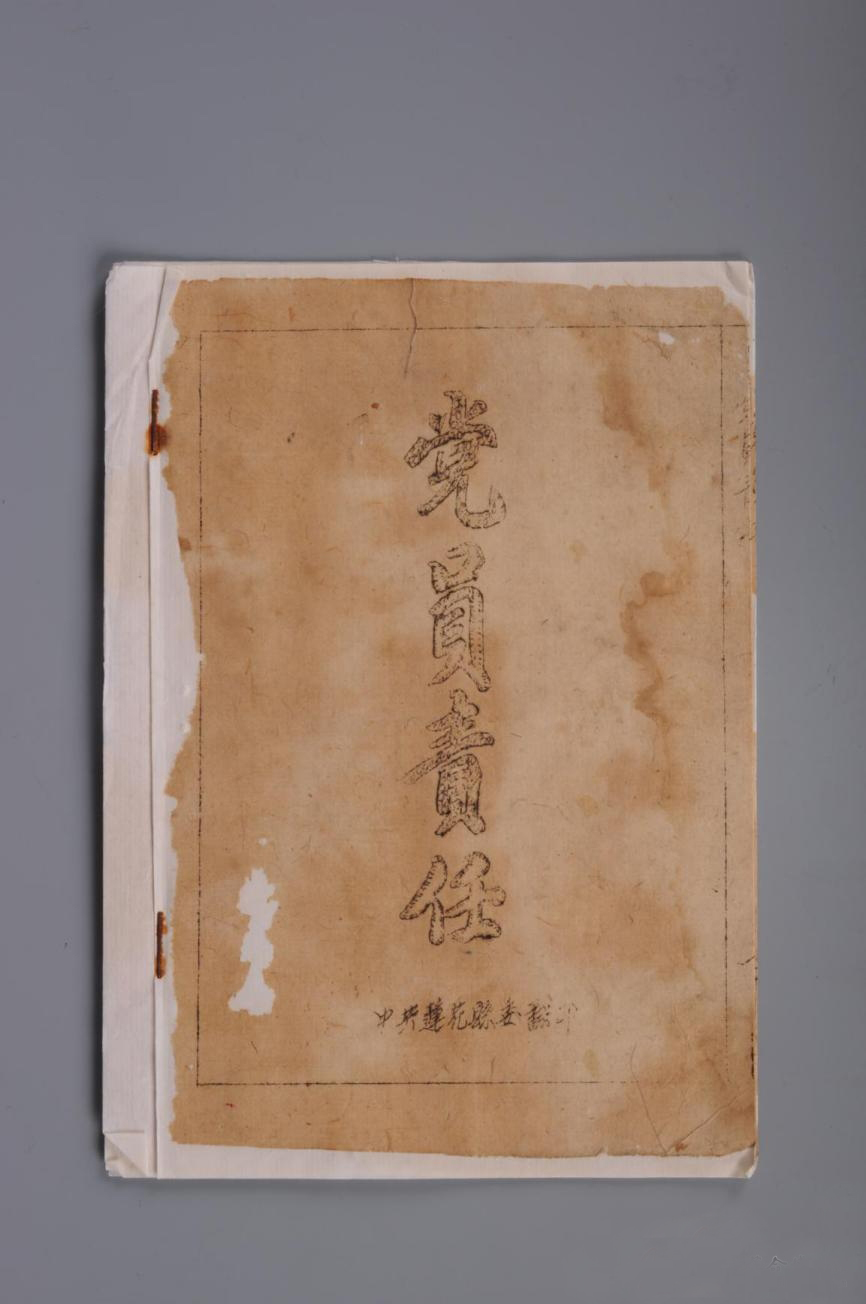 党員責任
中共蓮花縣委翻印